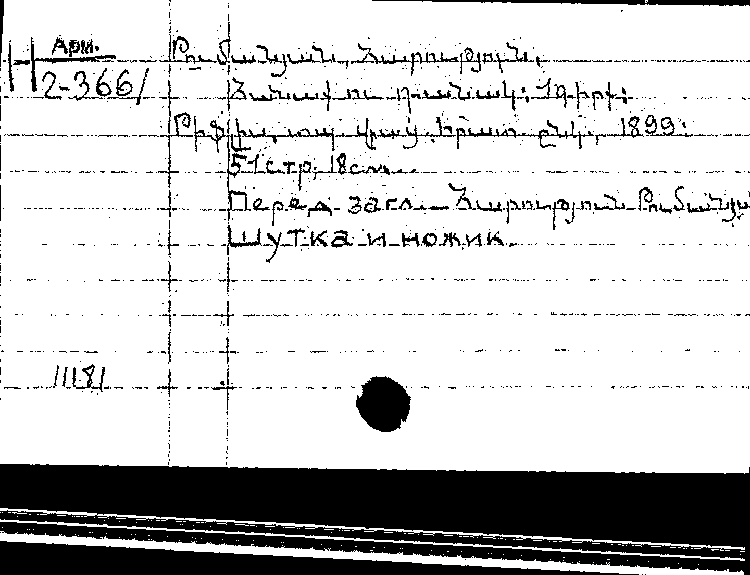 Арм.
Н 2-366/
Թումանյան, Հարություն.
Հանաք ու դանակ: 1 գիրք:
Թիֆլիս, տպ. վրաց. հրատ. ընկ., 1899:
51 стр., 18 см.
Перед загл. Հարություն Թումանյան
Шутка и ножик.
11181